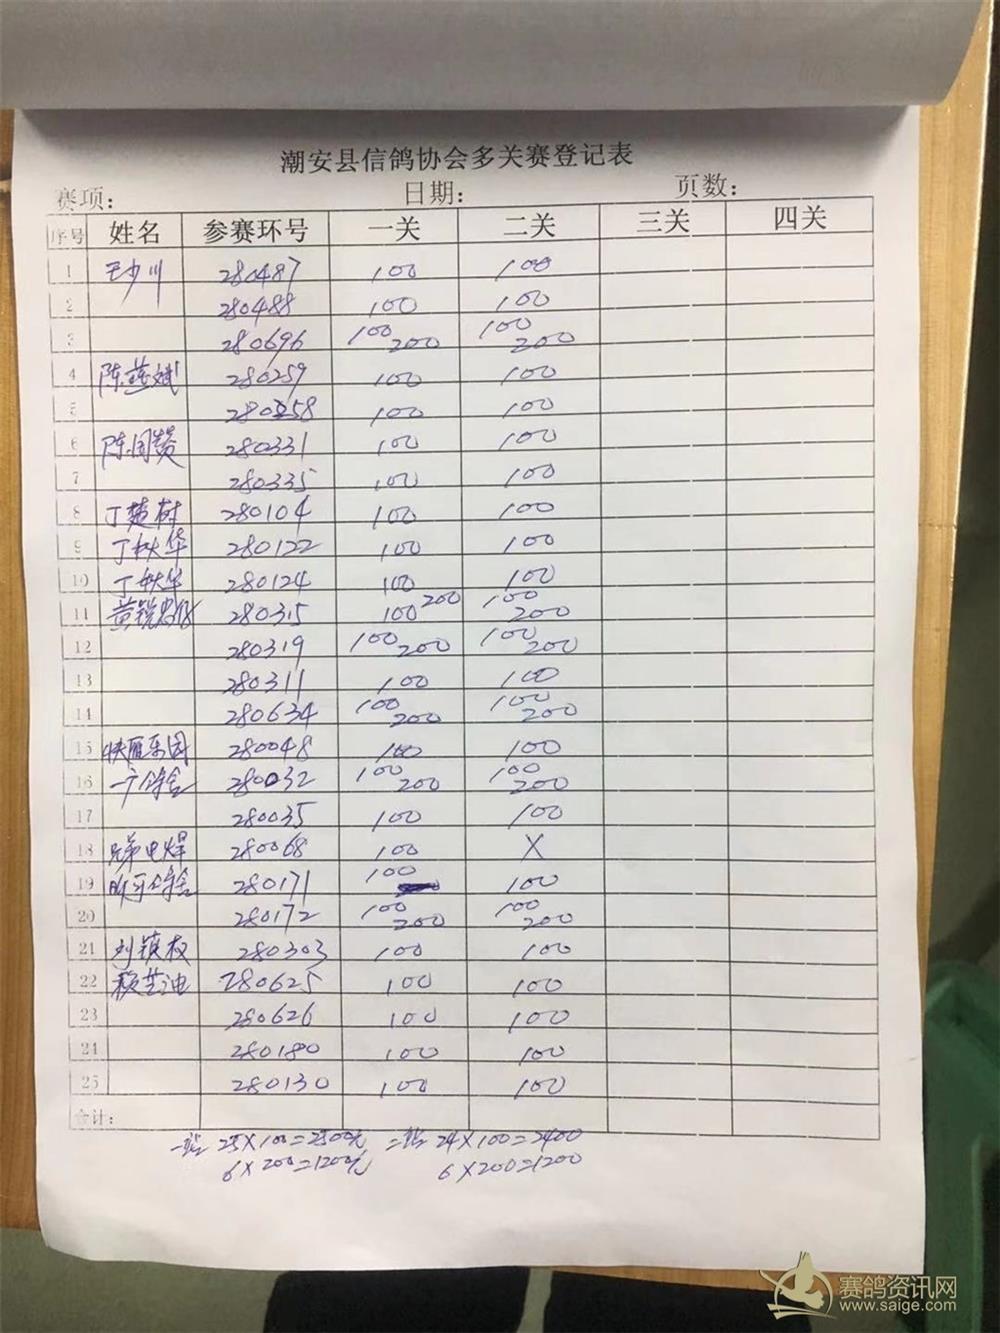 潮安县信鸽协会多关赛登记表
赛项： 日期： 页数：
序号 姓名 参赛环号 一关 二关 三关 四关
1 王少川 280487 100 100
2 280488 100 100
3 280696 100 200 100 200
4 陈燕斌 280259 100 100
5 280258 100 100
6 陈国赞 280331 100 100
7 280335 100 100
8 丁楚树 280104 100 100
9 丁秋华 280122 100 100
10 丁秋华 280124 100 100
11 黄锐 280315 100 200 100 200
12 280319 100 200 100 200
13 280311 100 100
14 280634 100 200 100 200
15 快雁乐园 280048 100 100
16 280032 100 200 100 200
17 280035 100 100
18 兄弟电焊 280068 100 X
19 280171 100 100
20 280172 100 200 100 200
21 刘镇权 280303 100 100
22 280625 100 100
23 280626 100 100
24 280180 100 100
25 280130 100 100
合计：
一站 25×100=2500元 二站 24×100=2400
6×200=1200元 6×200=1200
赛鸽资讯网
www.saige.com